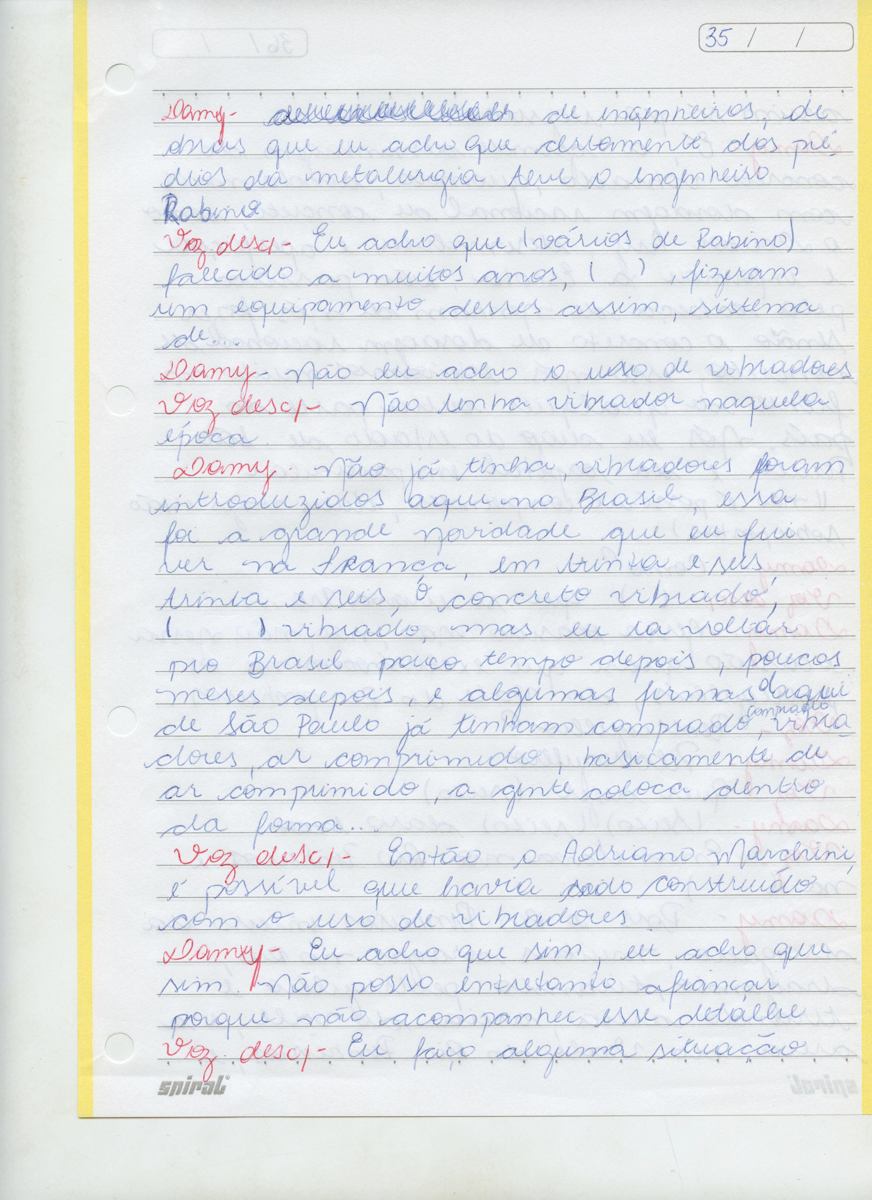 35 / /
Damy- de engenheiros, de
obras que eu acho que certamente dos pré-
dios da metalurgia teve o engenheiro
Rabino
Voz desc/- Eu acho que (vários de Rabino)
falecido a muitos anos, ( ), fizeram
um equipamento desses assim, sistema
de...
Damy- Não eu acho o uso de vibradores
Voz desc/- Não tinha vibrador naquela
época.
Damy- Não já tinha, vibradores foram
introduzidos aqui no Brasil, essa
foi a grande novidade que eu fui
ver na França, em trinta e seis
trinta e seis, o concreto vibrado,
( ) vibrado, mas eu ia voltar
pro Brasil pouco tempo depois, poucos
meses depois, e algumas firmas daqui
de São Paulo já tinham comprado, vibra-
comprado
dores, ar comprimido, basicamente de
ar comprimido, a gente coloca dentro
da forma...
Voz desc/- Então o Adriano Marchini,
é possível que havia sido construído
com o uso de vibradores
Damy- Eu acho que sim, eu acho que
sim. Não posso entretanto afiançar
porque não acompanhei esse detalhe
Voz desc/- Eu faço alguma situação
spiral